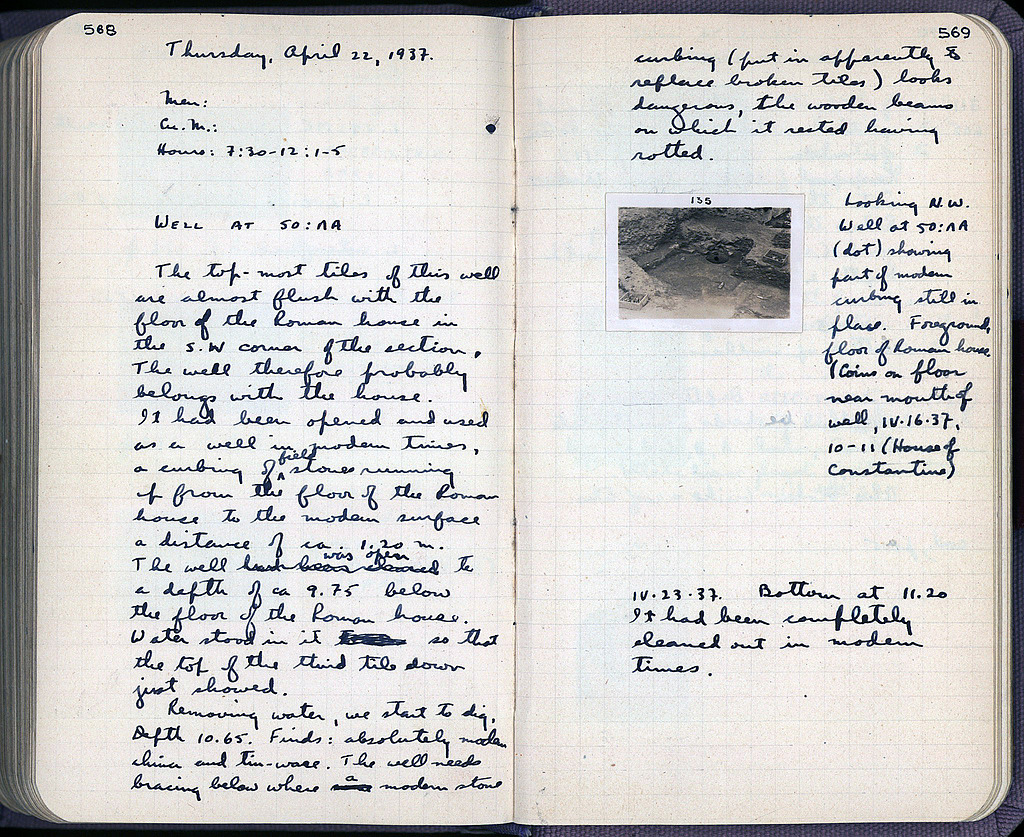 568
Thursday, April 22, 1937.
Men:
Cu. M.:
Hours: 7:30-12 : 1-5
WELL AT 50:ΛΑ
The top-most tiles of this well
are almost flush with the
floor of the Roman house in
the S.W corner of the section.
The well therefore probably
belongs with the house.
It had been opened and used
as a well in modern times,
a curbing of field stones running
up from the floor of the Roman
house to the modern surface
a distance of ca. 1.20 m.
The well had been cleaned was open to
a depth of ca 9.75 below
the floor of the Roman house.
Water stood in it so that
the top of the third tile down
just showed.
Removing water, we start to dig.
Depth 10.65. Finds: absolutely modern
china and tin-ware. The well needs
bracing below where a modern stone
569
curbing (put in apparently to
replace broken tiles) looks
dangerous, the wooden beams
on which it rested having
rotted.
135
Looking N.W.
Well at 50:ΛΑ
(dot) showing
part of modern
curbing still in
place. Foreground,
floor of Roman house
(Coins on floor
near mouth of
well, IV.16.37,
10-11 (House of
Constantine)
IV.23.37. Bottom at 11.20
It had been completely
cleaned out in modern
times.